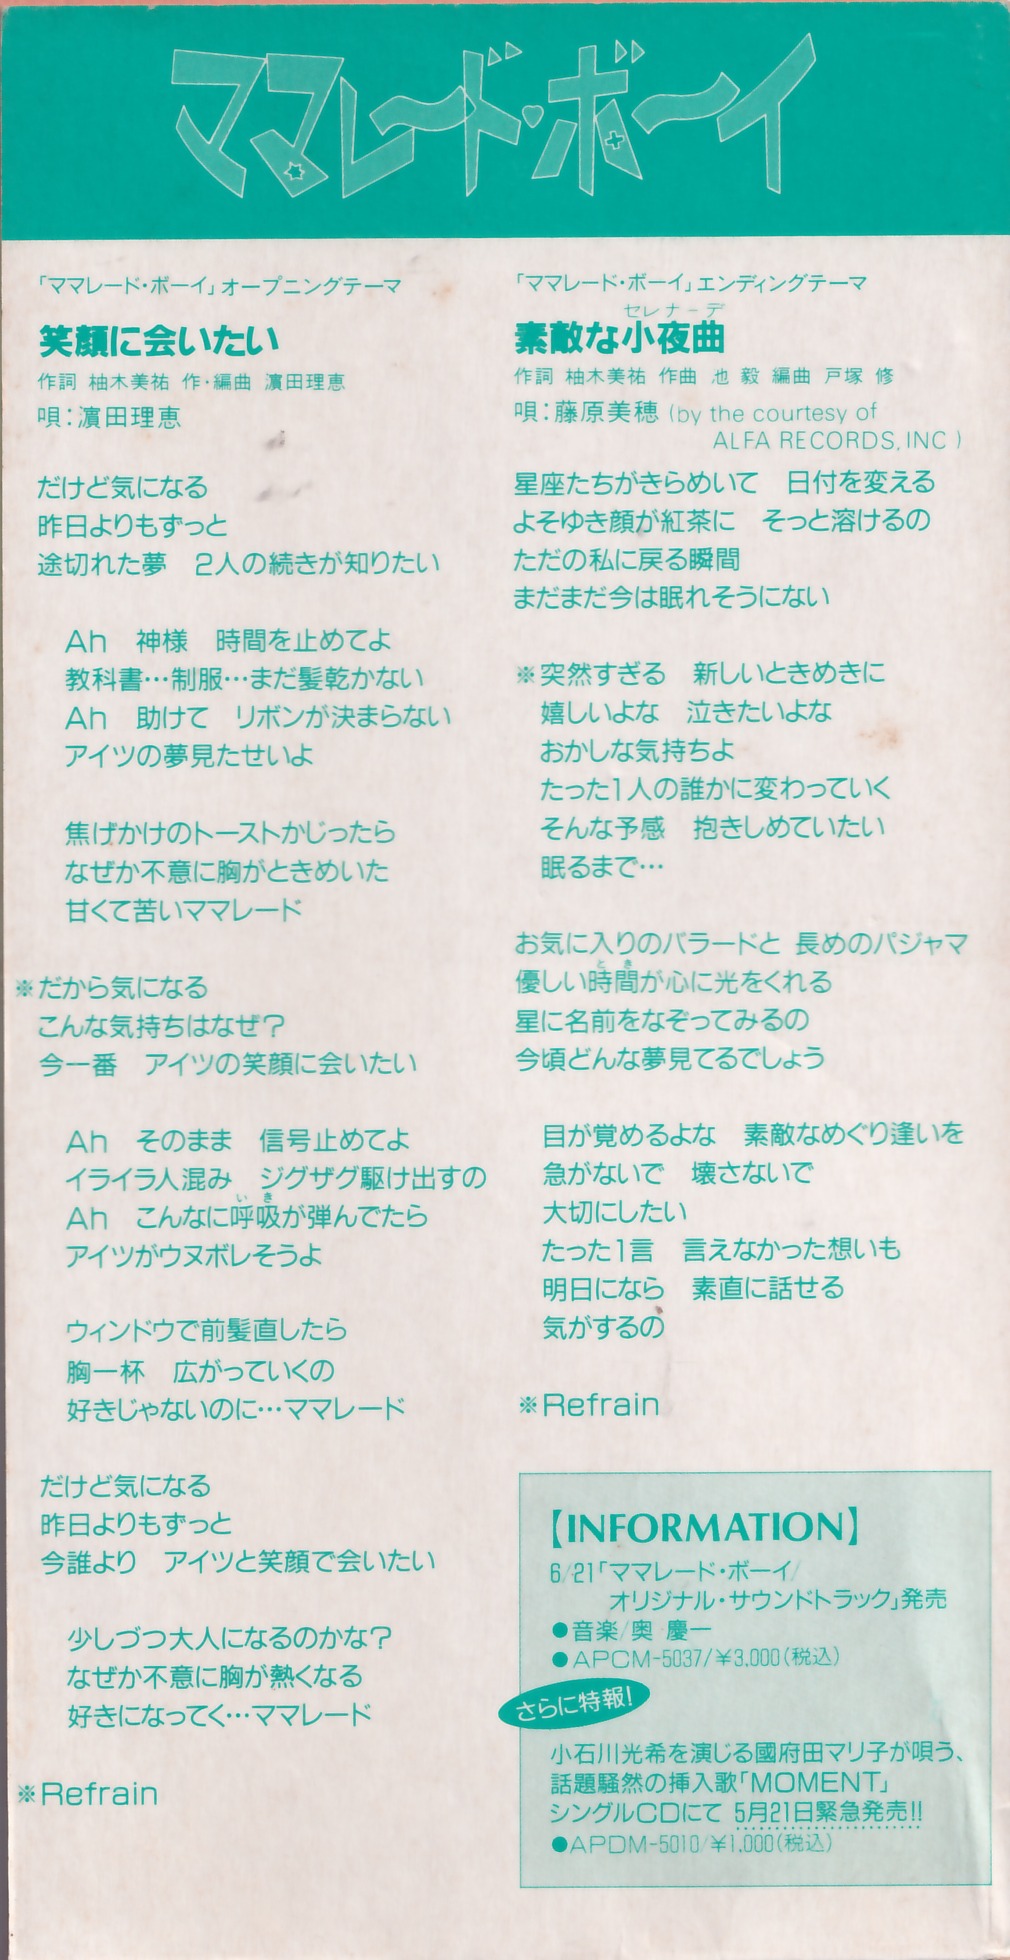 ママレード・ボーイ
「ママレード・ボーイ」オープニングテーマ
笑顔に会いたい
作詞 柚木美祐 作・編曲 濱田理恵
唄：濱田理恵
だけど気になる
昨日よりもずっと
途切れた夢　2人の続きが知りたい
Ah　神様　時間を止めてよ
教科書…制服…まだ髪乾かない
Ah　助けて　リボンが決まらない
アイツの夢見たせいよ
焦げかけのトーストかじったら
なぜか不意に胸がときめいた
甘くて苦いママレード
※だから気になる
こんな気持ちはなぜ？
今一番　アイツの笑顔に会いたい
Ah　そのまま　信号止めてよ
イライラ人混み　ジグザグ駆け出すの
いき
Ah　こんなに呼吸が弾んでたら
アイツがウヌボレそうよ
ウィンドウで前髪直したら
胸一杯　広がっていくの
好きじゃないのに…ママレード
だけど気になる
昨日よりもずっと
今誰より　アイツと笑顔で会いたい
少しづつ大人になるのかな？
なぜか不意に胸が熱くなる
好きになってく…ママレード
※Refrain
「ママレード・ボーイ」エンディングテーマ
セレナーデ
素敵な小夜曲
作詞 柚木美祐 作曲 池 毅 編曲 戸塚 修
唄：藤原美穂 (by the courtesy of
ALFA RECORDS, INC )
星座たちがきらめいて　日付を変える
よそゆき顔が紅茶に　そっと溶けるの
ただの私に戻る瞬間
まだまだ今は眠れそうにない
※突然すぎる　新しいときめきに
嬉しいよな　泣きたいよな
おかしな気持ちよ
たった1人の誰かに変わっていく
そんな予感　抱きしめていたい
眠るまで…
お気に入りのバラードと 長めのパジャマ
とき
優しい時間が心に光をくれる
星に名前をなぞってみるの
今頃どんな夢見てるでしょう
目が覚めるよな　素敵なめぐり逢いを
急がないで　壊さないで
大切にしたい
たった1言　言えなかった想いも
明日になら　素直に話せる
気がするの
※Refrain
【INFORMATION】
6/21「ママレード・ボーイ/
オリジナル・サウンドトラック」発売
●音楽/奥 慶一
●APCM-5037/¥3,000(税込)
さらに特報！
小石川光希を演じる國府田マリ子が唄う、
話題騒然の挿入歌「MOMENT」
シングルCDにて 5月21日緊急発売!!
●APDM-5010/¥1,000(税込)